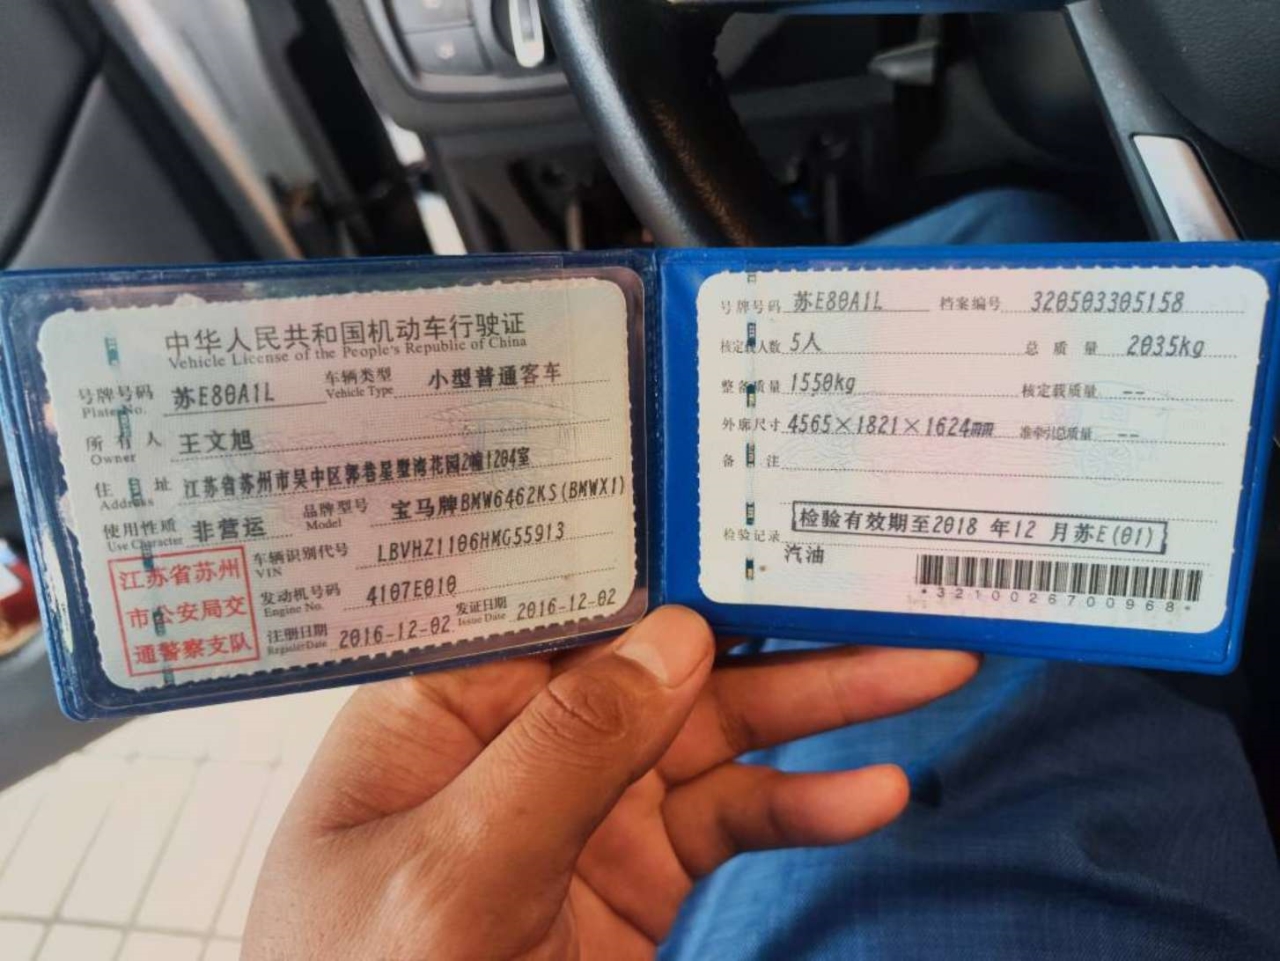 中华人民共和国机动车行驶证
Vehicle License of the People's Republic of China
号牌号码 苏E80A1L 车辆类型 小型普通客车
Plate No. Vehicle Type
所有人 王文旭
Owner
住址 江苏省苏州市吴中区郭巷星墅湾花园2幢1204室
Address
使用性质 非营运 品牌型号 宝马牌BMW6462KS(BMWX1)
Use Character Model
车辆识别代号 LBVHZ1106HMG55913
VIN
发动机号码 4107E010
Engine No.
注册日期 2016-12-02 发证日期 2016-12-02
Register Date Issue Date
江苏省苏州
市公安局交
通警察支队
号牌号码 苏E80A1L 档案编号 320503305158
核定载人数 5人 总质量 2035kg
整备质量 1550kg 核定载质量 --
外廓尺寸 4565×1821×1624mm 准牵引总质量 --
备注
检验记录 检验有效期至2018 年12 月苏E(01)
汽油
*3210026700968*